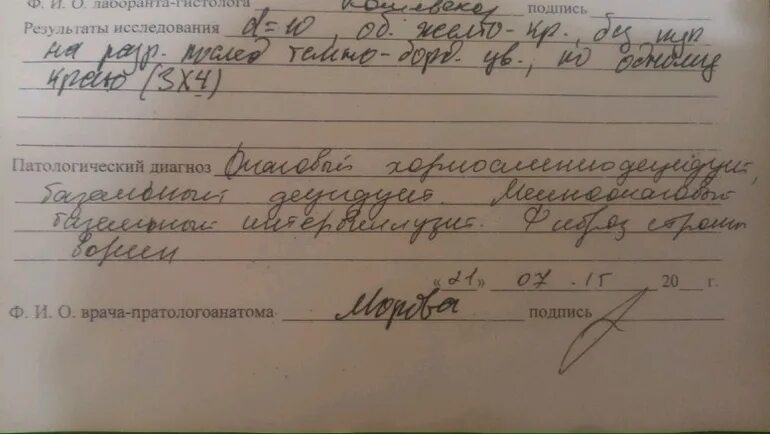 Ф. И. О. лаборанта-гистолога подпись
Результаты исследования d=10, об. желто-кр., без
на разр. послед темно-борд. цв., по одному
краю (3х4)
Патологический диагноз Очаговый хориоамниодецидуит,
базальный децидуит. Мелкоочаговый
базальный интервиллузит. Фиброз стромы
ворсин
«21» 07 . 15 20 г.
Ф. И. О. врача-пратологоанатома подпись